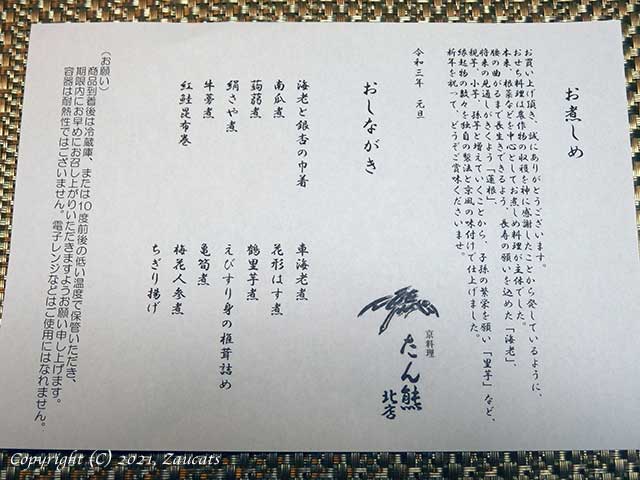 お煮しめ
お買い上げ頂き、誠にありがとうございます。
おせち料理は農作物の収穫を神に感謝したことから発しているように、
本来、根菜などを中心としてお煮しめ料理が主体でした。
腰の曲がるまで長生きできるよう、長寿の願いを込めた「海老」、
将来の見通しがきくよう「蓮根」、
親芋、小芋、孫芋と増えていくことから、子孫の繁栄を願い「里芋」など、
縁起物の数々を独自の製法と京風の味付けで仕上げました。
新年を祝って、どうぞご賞味くださいませ。
令和三年 元旦
京料理
たん熊
北店
おしながき
海老と銀杏の巾着
南瓜煮
蒟蒻煮
絹さや煮
牛蒡煮
紅鮭昆布巻
車海老煮
花形はす煮
鶴里芋煮
えびすり身の椎茸詰め
亀筍煮
梅花人参煮
ちぎり揚げ
(お願い)
商品到着後は冷蔵庫、または10度前後の低い温度で保管いただき、
期限内にお早めにお召し上がりいただきますようお願い申し上げます。
容器は耐熱性ではございません。電子レンジなどはご使用にはなれません。
Copyright (C) 2021, Zaucats